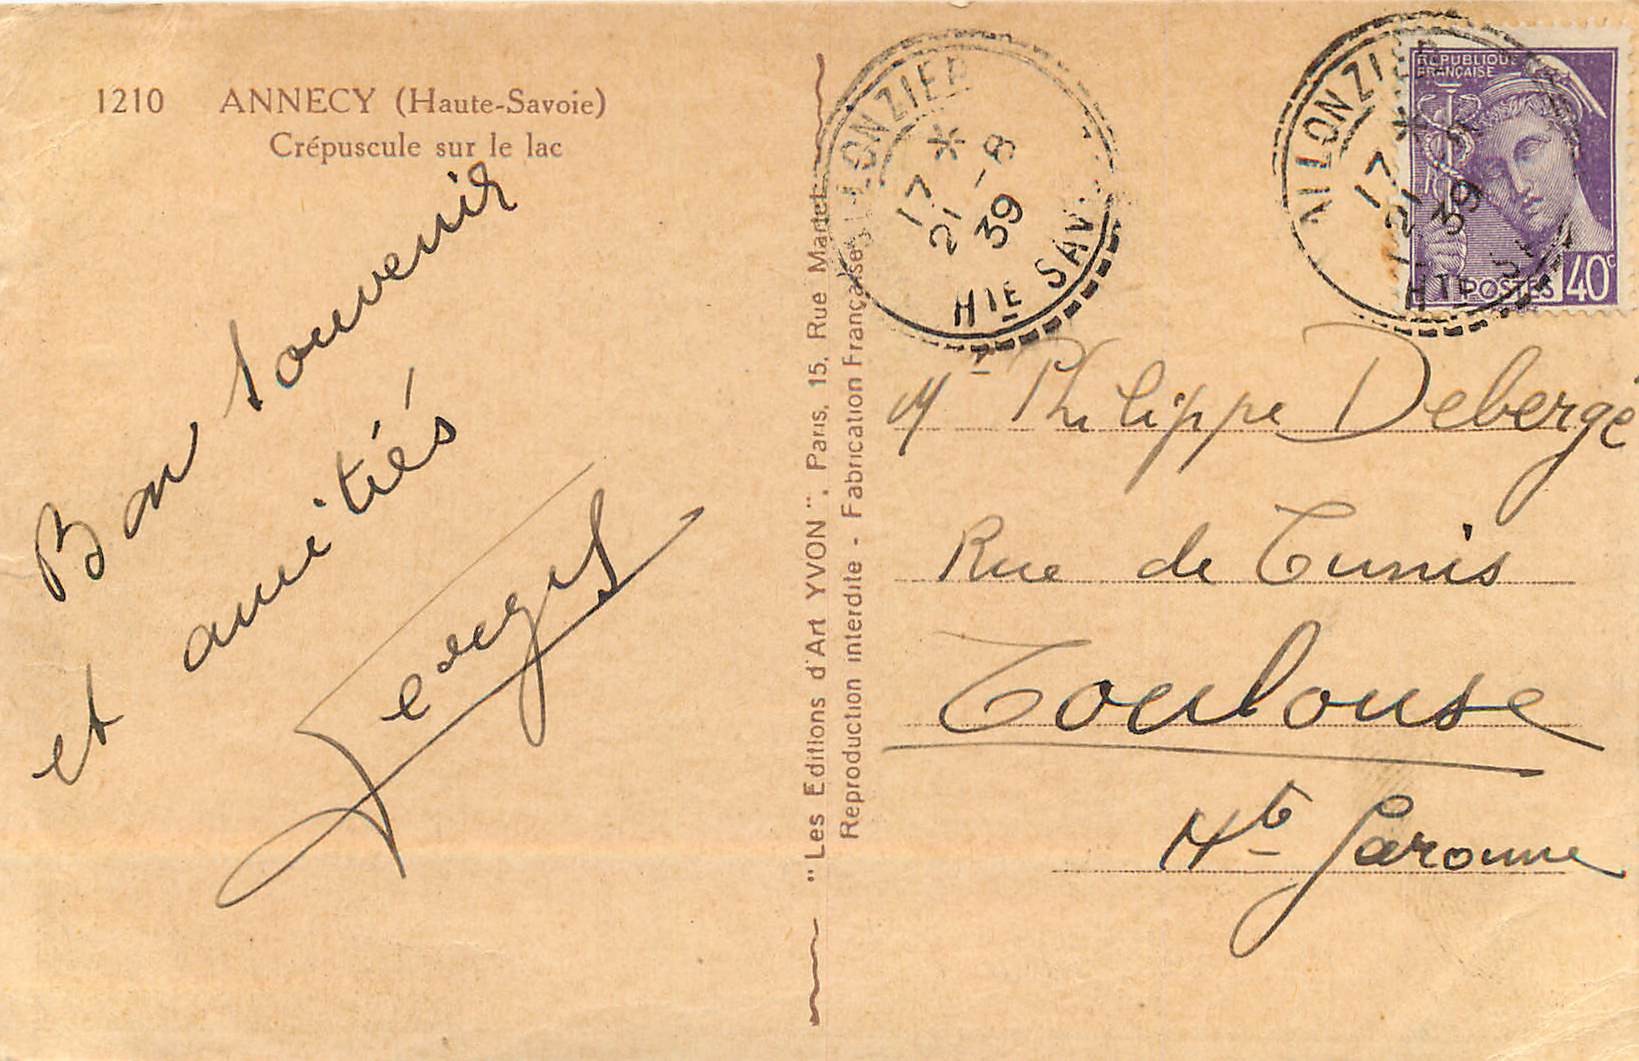 1210 ANNECY (Haute-Savoie)
Crépuscule sur le lac
Bon souvenir
et amitiés
Georges
"Les Editions d'Art YVON", Paris, 15, Rue Martel
Reproduction interdite - Fabrication Française
ALLONZIER
*
17
21-8
39
HTE SAV.
ALLONZIER
*
17
21-8
39
HTE SAV
REPUBLIQUE
FRANÇAISE
POSTES 40c
Mr Philippe Debergé
Rue de Tunis
Toulouse
Hte Garonne